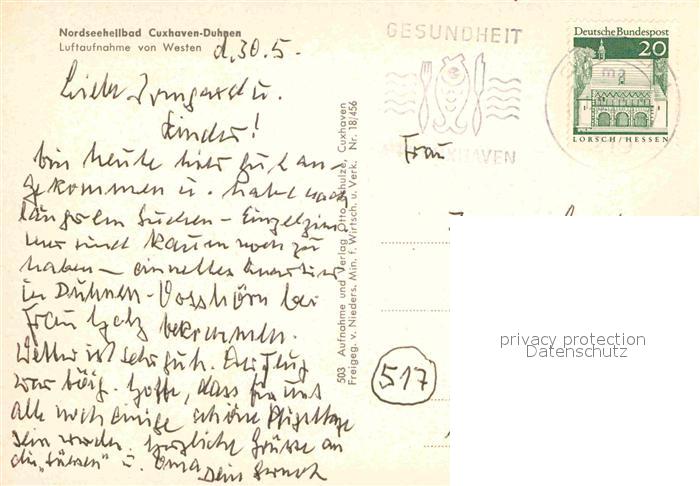 Nordseeheilbad Cuxhaven-Duhnen
Luftaufnahme von Westen
d. 30.5.
Liebe Irmgard u.
Kinder!
bin heute hier gut an-
gekommen u. habe nach
längerem Suchen - Einzelzim-
mer sind kaum noch zu
haben - ein nettes Quartier
in Duhnen - bei
Frau bekommen.
Wetter ist sehr gut.
war Hoffe, dass für uns
alle noch einige schöne
sein werden. Herzliche Grüsse an
die u. Oma Dein
503 Aufnahme und Verlag Otto Schulze, Cuxhaven
Freigeg. v. Nieders. Min. f. Wirtsch. u. Verk. Nr. 18/456
GESUNDHEIT
CUXHAVEN
Deutsche Bundespost
20
LORSCH/HESSEN
Frau
517
privacy protection
Datenschutz